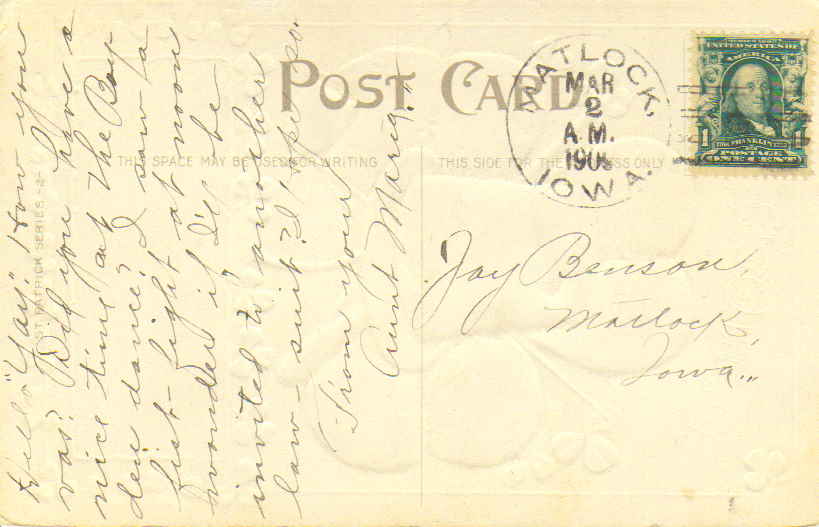 POST CARD
THIS SPACE MAY BE USED FOR WRITING
THIS SIDE FOR THE ADDRESS ONLY
ST PATRICK SERIES -2-
MATLOCK,
MAR
2
A.M.
190
IOWA.
UNITED STATES OF
AMERICA
1 FRANKLIN 1
POSTAGE
ONE CENT
Hello "Jay," How you
vas? Did you have a
nice time at the Bow
den dance? I saw a
fist-fight at noon
wonder if I'll be
invited to another
law-suit? I 'spose so.
From your
Aunt Marie."
Jay Benson,
Matlock,
Iowa,,